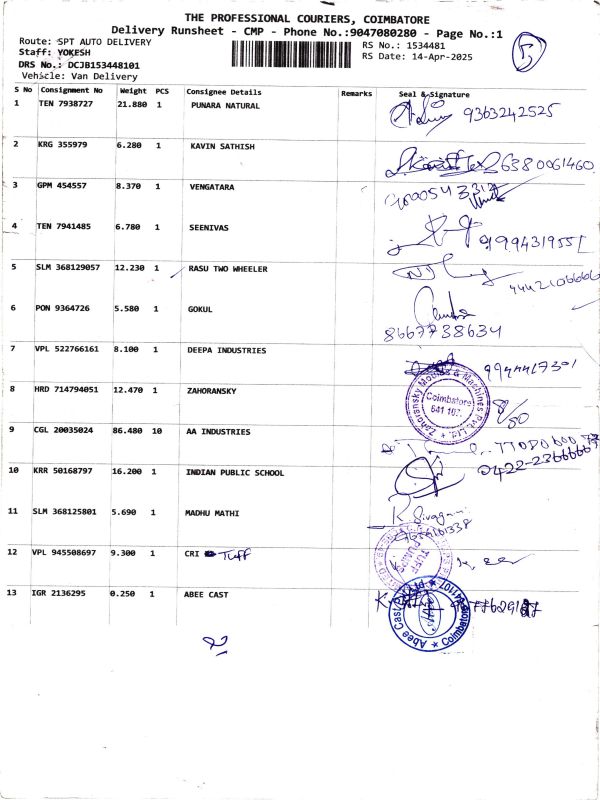 THE PROFESSIONAL COURIERS, COIMBATORE
Delivery Runsheet - CMP - Phone No.:9047080280 - Page No.:1
Route: SPT AUTO DELIVERY
RS No.: 1534481
Staff: YOKESH
RS Date: 14-Apr-2025
DRS No.: DCJB153448101
Vehicle: Van Delivery
S No Consignment No Weight PCS Consignee Details Remarks Seal & Signature
1 TEN 7938727 21.880 1 PUNARA NATURAL 9363242525
2 KRG 355979 6.280 1 KAVIN SATHISH 6380061460
3 GPM 454557 8.370 1 VENGATARA
4 TEN 7941485 6.780 1 SEENIVAS
5 SLM 368129057 12.230 1 RASU TWO WHEELER
6 PON 9364726 5.580 1 GOKUL
8667738634
7 VPL 522766161 8.100 1 DEEPA INDUSTRIES 9944417301
8 HRD 714794051 12.470 1 ZAHORANSKY
Zahoransky Moulds & Machines Pvt. Ltd.
Coimbatore
9 CGL 20035024 86.480 10 AA INDUSTRIES
10 KRR 50168797 16.200 1 INDIAN PUBLIC SCHOOL
11 SLM 368125801 5.690 1 MADHU MATHI
12 VPL 945508697 9.300 1 CRI Tuff
TUFF
13 IGR 2136295 0.250 1 ABEE CAST
Abee Cast
Coimbatore